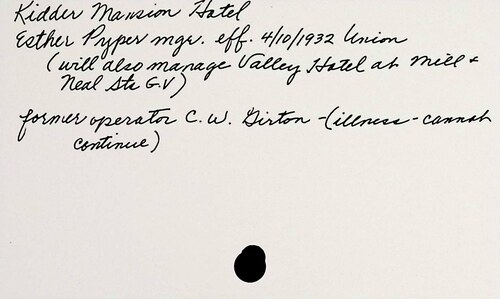 Kidder Mansion Hotel
Esther Pyper mgr. eff. 4/10/1932 Union
(will also manage Valley Hotel at Mill &
Neal Sts G.V)
former operator C. W. Girton - (illness - cannot
continue)